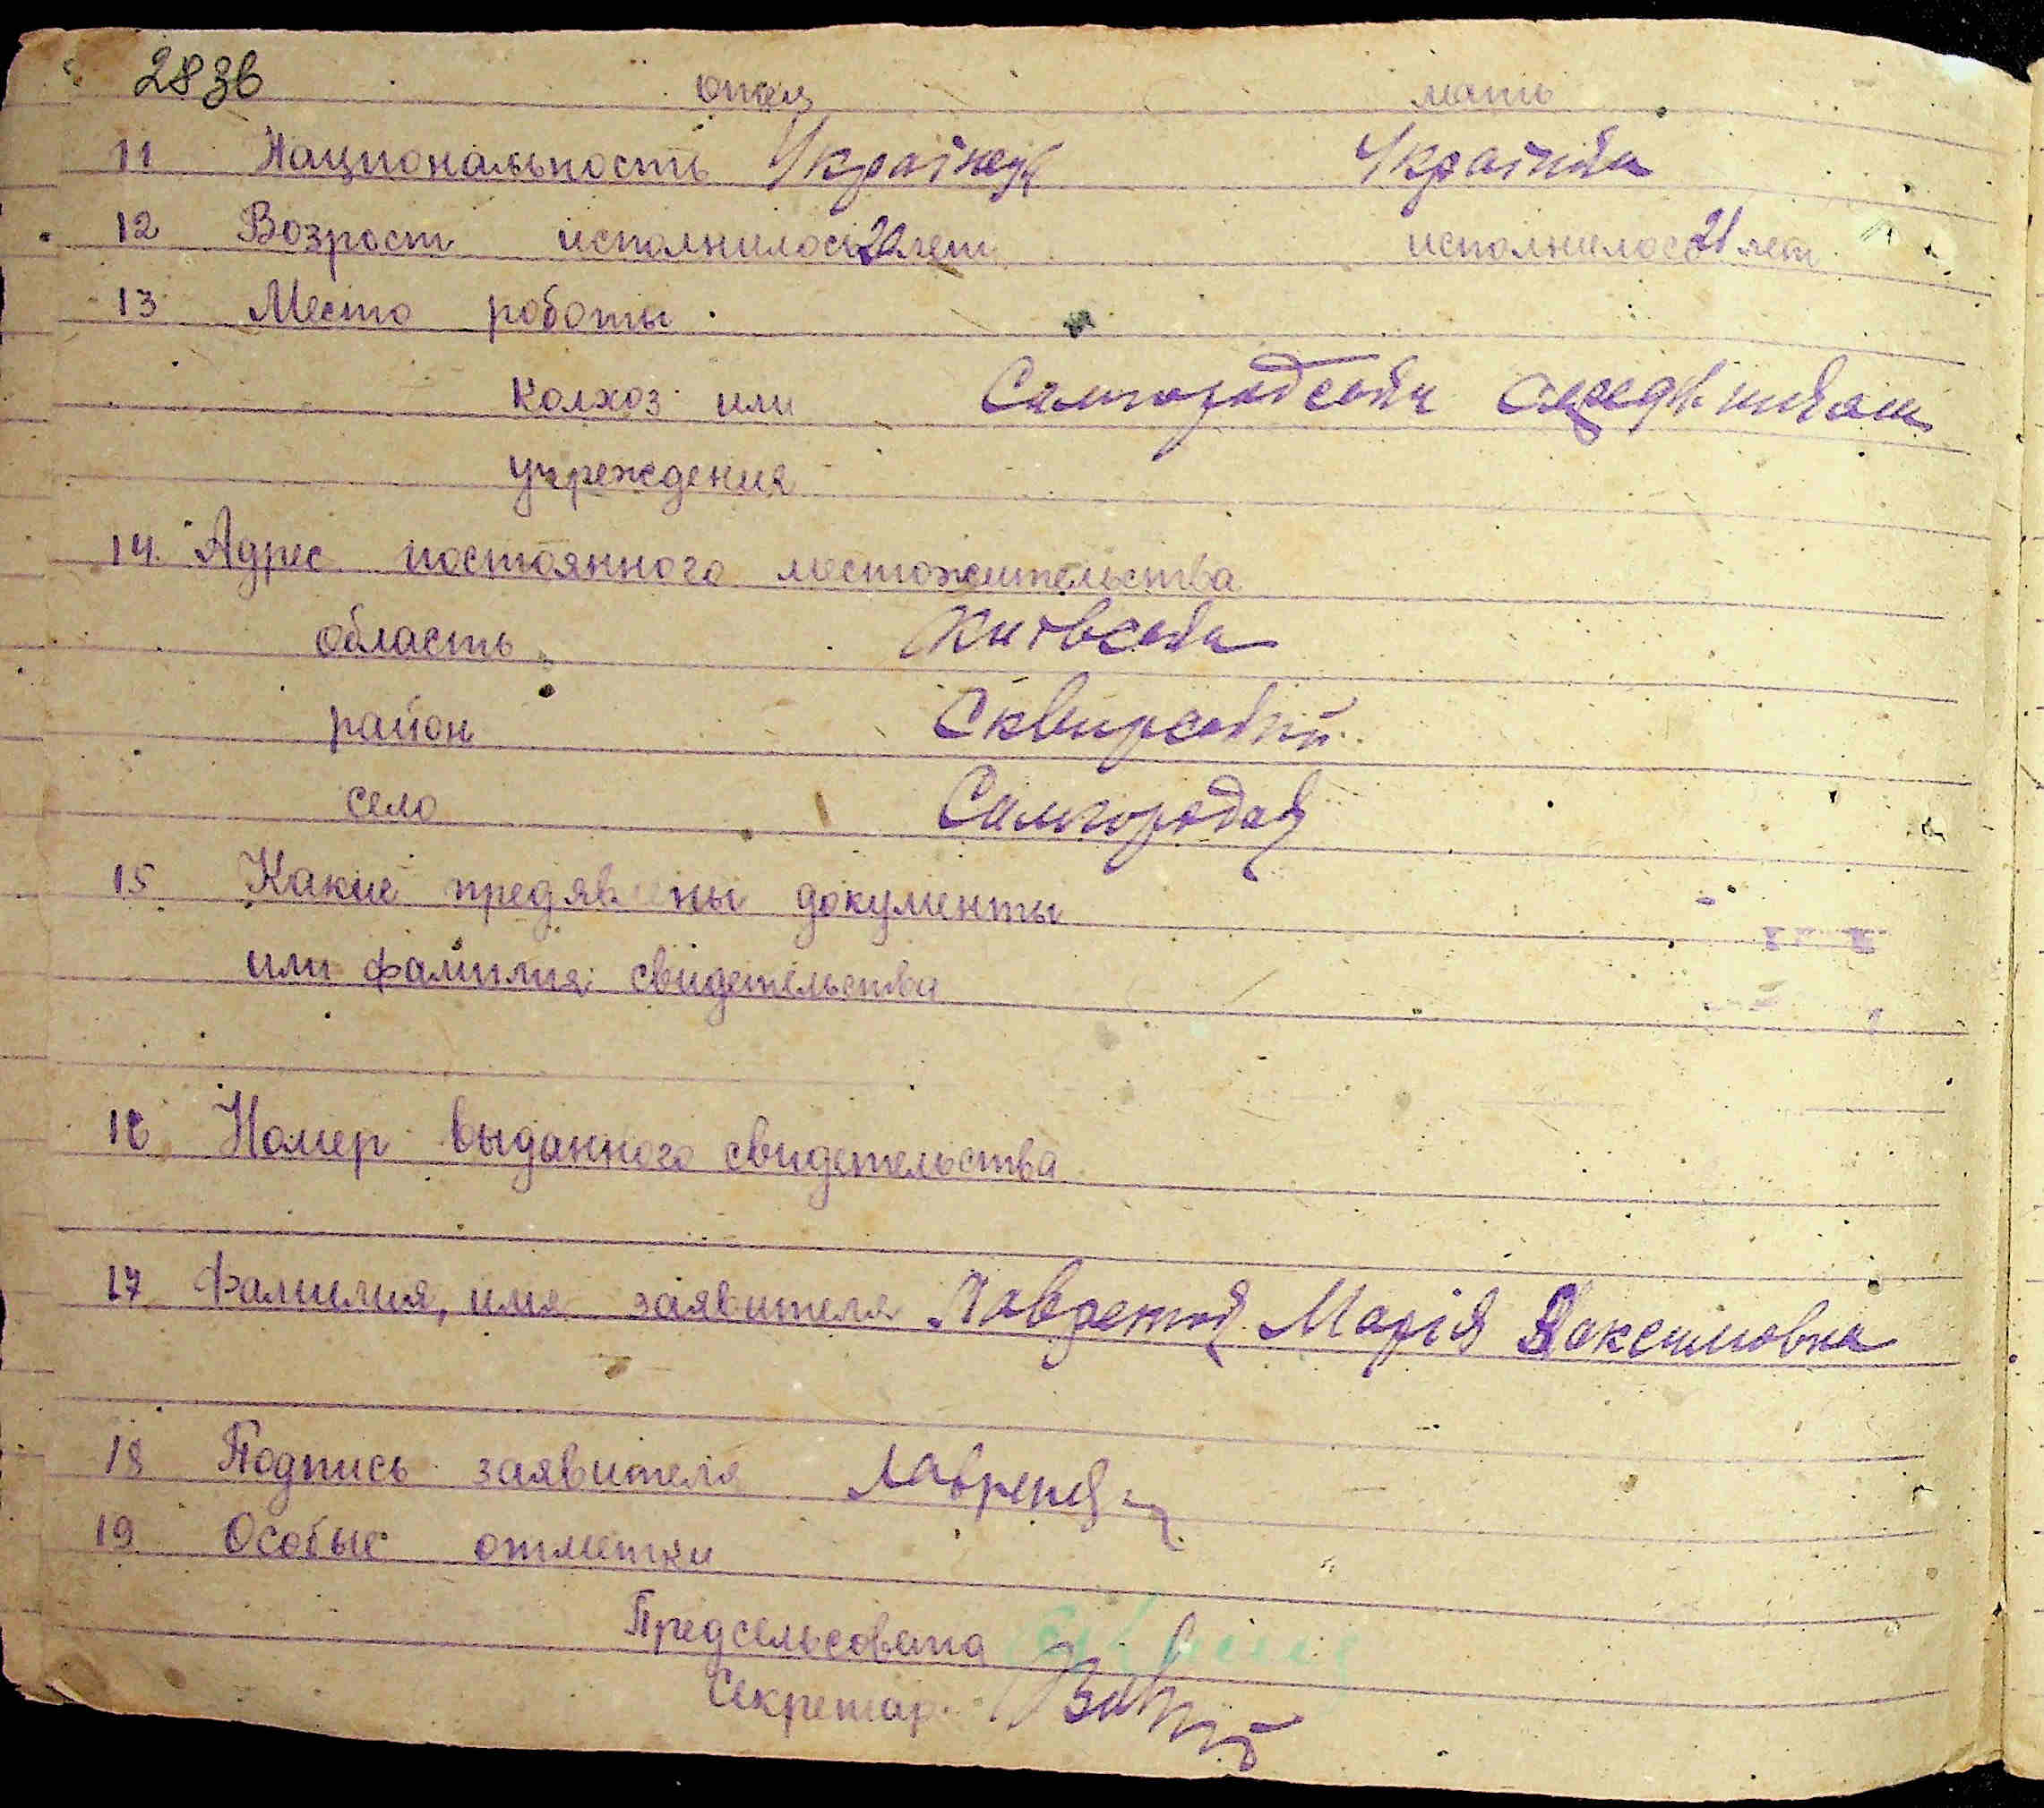 283в
отец мать
11 Национальность Українец Українка
12 Возрост исполнилось 20 лет исполнилос 21 лет
13 Место роботы
колхоз или Самгородська
учреждения
14. Адрес постоянного местожительства
область Київська
район Сквирський
село Самгородок
15 Какие предявлены документы
или фамилия свидетельства
16 Номер выданного свидетельства
17 Фамилия, имя заявителя Марія Максимовна
18 Подпись заявителя
19 Особые отметки
Предсельсовета
Секретар